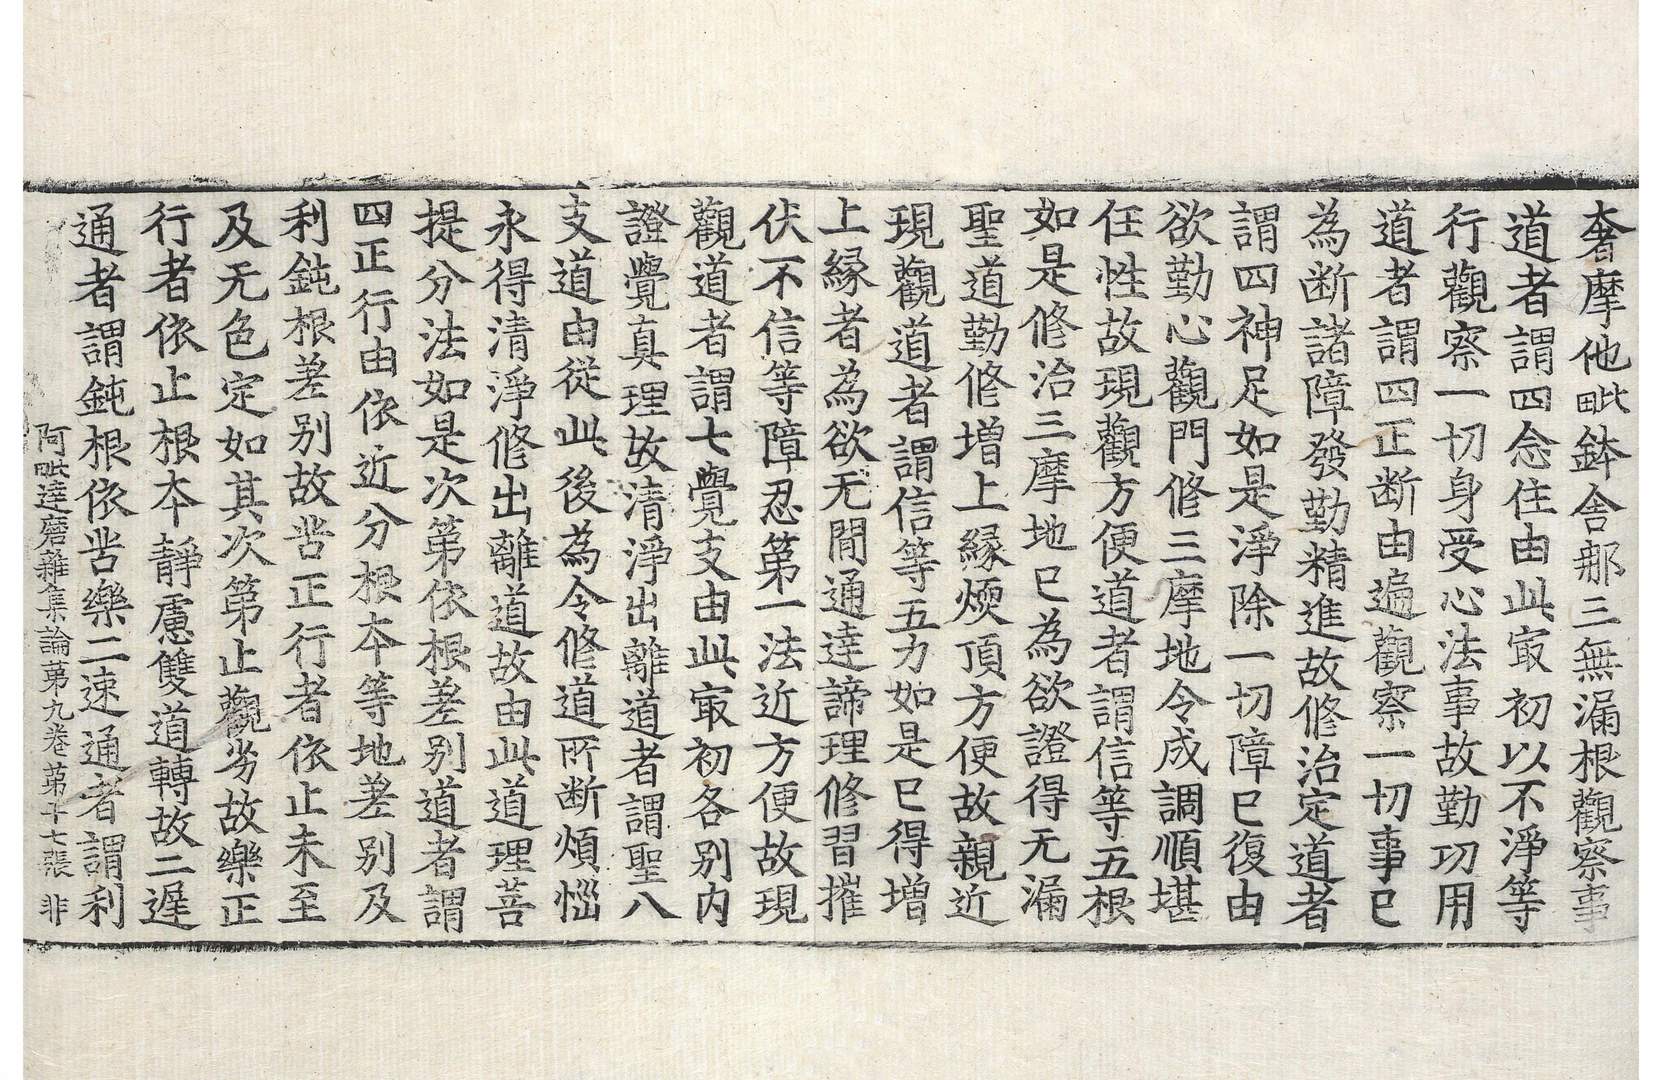 奢摩他毗鉢舍那三無漏根觀察事
道者謂四念住由此冣初以不淨等
行觀察一切身受心法事故勤功用
道者謂四正断由遍觀察一切事已
為断諸障發勤精進故修治定道者
謂四神足如是淨除一切障已復由
欲勤心觀門修三摩地令成調順堪
任性故現觀方便道者謂信等五根
如是修治三摩地已為欲證得无漏
聖道勤修增上緣煗頂方便故親近
現觀道者謂信等五力如是已得增
上緣者為欲无閒通達諦理修習摧
伏不信等障忍第一法近方便故現
觀道者謂七覺支由此冣初各别内
證覺真理故清淨出離道者謂聖八
支道由從此後為令修道所断煩惱
永得清淨修出離道故由此道理菩
提分法如是次第依根差别道者謂
四正行由依近分根本等地差别及
利鈍根差别故苦正行者依止未至
及无色定如其次第止觀劣故樂正
行者依止根本靜慮雙道轉故二遲
通者謂鈍根依苦樂二速通者謂利
阿毗達磨雜集論第九卷 第十七張 非